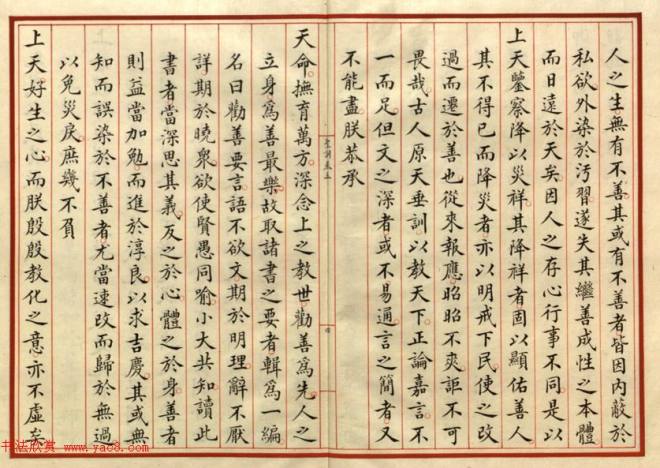 人之生無有不善其或有不善者皆因內蔽於
私欲外染於汚習遂失其繼善成性之本體
而日遠於天矣因人之存心行事不同是以
上天鑒察降以災祥其降祥者固以顯佑善人
其不得已而降災者亦以明戒下民使之改
過而遷於善也從來報應昭昭不爽詎不可
畏哉古人原天垂訓以教天下正論嘉言不
一而足但文之深者或不易通言之簡者又
不能盡朕恭承
天命撫育萬方深念上之教世勸善爲先人之
立身爲善最樂故取諸書之要者輯爲一編
名曰勸善要言語不欲文期於明理辭不厭
詳期於曉衆欲使賢愚同喻小大共知讀此
書者當深思其義反之於心體之於身善者
則益當加勉而進於淳良以求吉慶其或無
知而誤染於不善者尤當速改而歸於無過
以免災戾庶幾不負
上天好生之心而朕殷殷教化之意亦不虛矣
书法欣赏 www.yac8.com